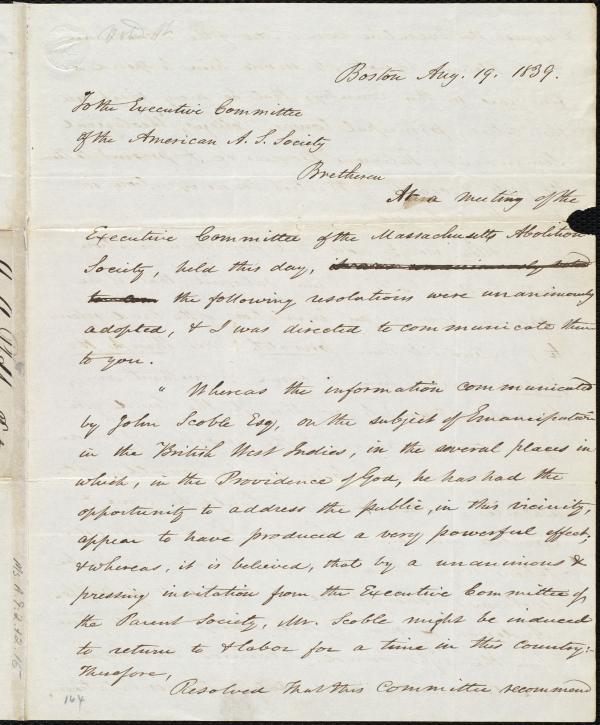 Boston Aug. 19. 1839.
To the Executive Committee
of the American A. S. Society
Bretheren
At a meeting of the
Executive Committee of the Massachusetts Abolition
Society, held this day, it was unanimously voted
to com the following resolutions were unanimously
adopted, & I was directed to communicate them
to you.
" Whereas the information communicated
by John Scoble Esq, on the subject of Emancipation
in the British West Indies, in the several places in
which, in the Providence of God, he has had the
opportunity to address the public, in this vicinity,
appear to have produced a very powerful effect,
& whereas, it is believed, that by a unanimous &
pressing invitation from the Executive Committee of
the Parent Society, Mr. Scoble might be induced
to return to & labor for a time in this country:-
Therefore,
Resolved That this Committee recommend
Ms. A. 9. 2. 12. 75
164